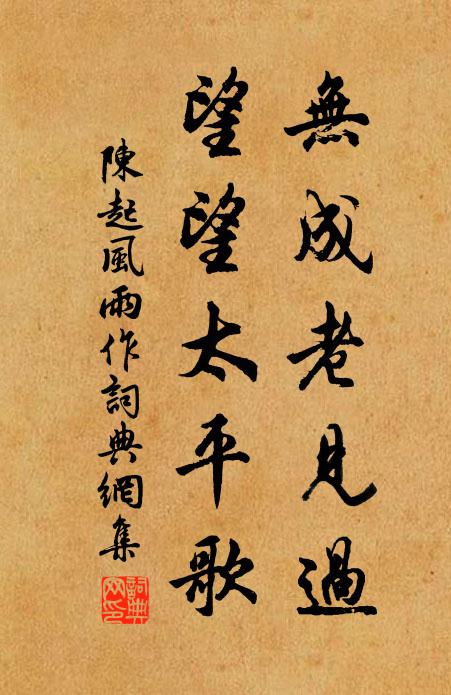 無成老見過
望望太平歌
陳起風雨作詞典網集
詞典
网印